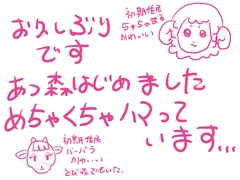 お久しぶり
です
初期住民
ちゃちゃまる
かわいい
あつ森はじめました
めちゃくちゃハマって
います…
初期住民
バーバラ
かわいい
とび森でもいた。